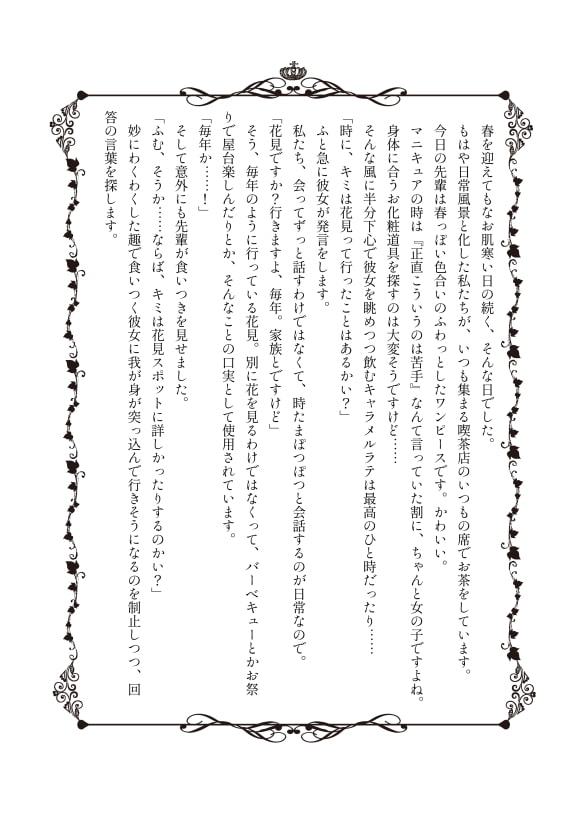 春を迎えてもなお肌寒い日の続く、そんな日でした。
もはや日常風景と化した私たちが、いつも集まる喫茶店のいつもの席でお茶をしています。
今日の先輩は春っぽい色合いのふわっとしたワンピースです。かわいい。
マニキュアの時は『正直こういうのは苦手』なんて言っていた割に、ちゃんと女の子ですよね。
身体に合うお化粧道具を探すのは大変そうですけど……
そんな風に半分下心で彼女を眺めつつ飲むキャラメルラテは最高のひと時だったり……
「時に、キミは花見って行ったことはあるかい？」
ふと急に彼女が発言をします。
私たち、会ってずっと話すわけではなくて、時たまぽつぽつと会話するのが日常なので。
「花見ですか？行きますよ、毎年。家族とですけど」
そう、毎年のように行っている花見。別に花を見るわけではなくって、バーベキューとかお祭
りで屋台楽しんだりとか、そんなことの口実として使用されています。
「毎年か……！」
そして意外にも先輩が食いつきを見せました。
「ふむ、そうか……ならば、キミは花見スポットに詳しかったりするのかい？」
妙にわくわくした趣で食いつく彼女に我が身が突っ込んで行きそうになるのを制止しつつ、回
答の言葉を探します。